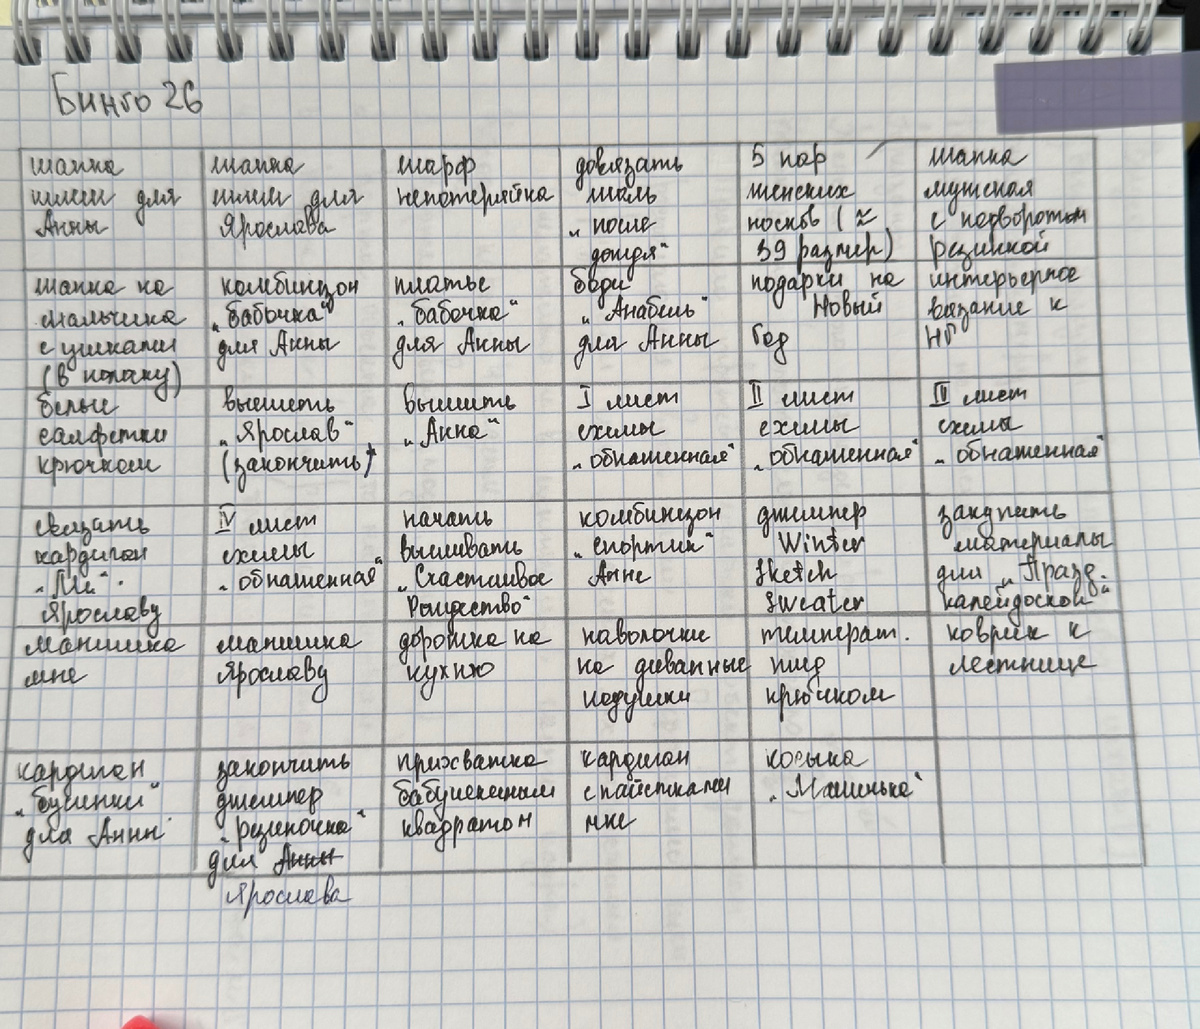 Бинго 26
шапка
шлем для
Анны
шапка
шлем для
Ярослава
шарф
непотеряйка
довязать
шаль
„после
дождя"
5 пар
женских
носков (≈
39 размер)
шапка
мужская
с подворотом
резинкой
шапка на
мальчика
с ушками
(в попаху)
комбинезон
„бабочка"
для Анны
платье
„бабочка"
для Анны
боди
„Анабель"
для Анны
подарки на
Новый
Год
интерьерное
вязание к
НГ
белые
салфетки
крючком
вышить
„Ярослав"
(закончить)
вышить
„Анна"
I лист
схемы
„обнаженная"
II лист
схемы
„обнаженная"
III лист
схемы
„обнаженная"
связать
кардиган
Ярославу
IV лист
схемы
„обнаженная"
начать
вышивать
„Счастливое
Рождество"
комбинезон
„спортик"
Анне
джемпер
Winter
Sketch
Sweater
закупить
материалы
для „Празд.
калейдоскоп"
манишка
мне
манишка
Ярославу
дорожка на
кухню
наволочки
на диванные
подушки
температ.
плед
крючком
коврик к
лестнице
кардиган
„бусинки"
для Анны
закончить
джемпер
„резиночка"
для Анны
Ярослава
прихватка
бабушкиным
квадратом
кардиган
с пайетками
мне
косынка
„Машенька"